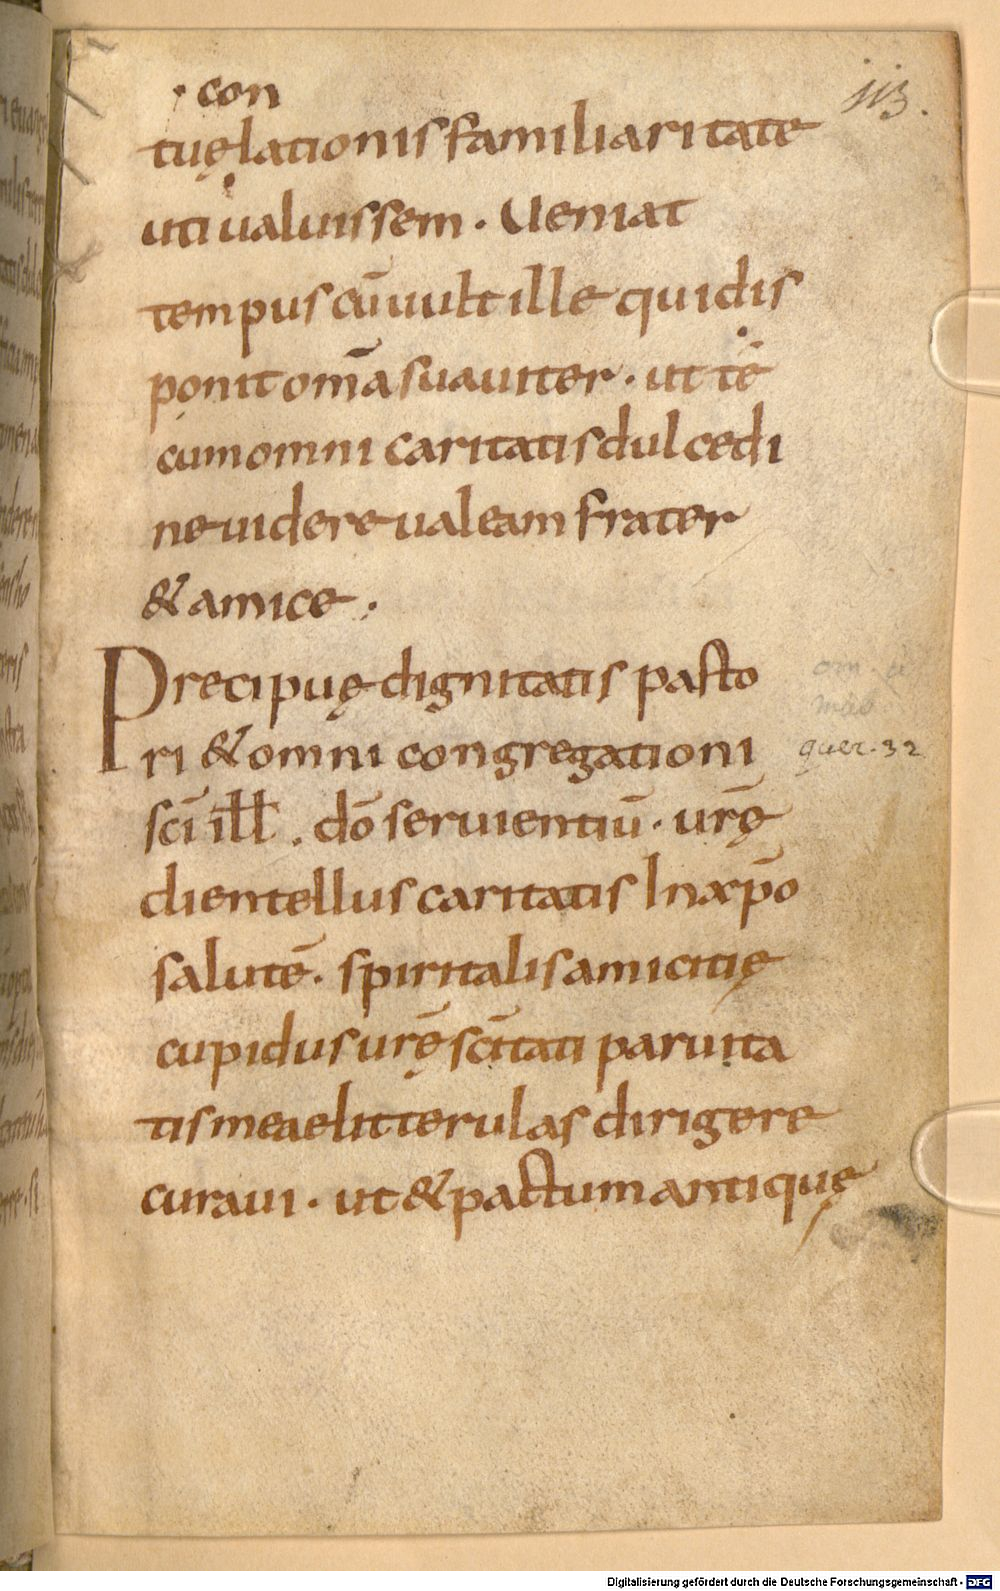 · con
113.
tuęlationisfamiliaritate
utiualuissem · Ueniat
tempuscūuultille quidis
ponitom̄asuauiter · ut te
cumomni caritatisdulcedi
neuidereualeamfrater
&amice ·
Precipuędignitatis pasto
ri &omni congregationi
quer. 32
sc̄i ill̄ . dō seruientiū · ur̄ę
clientellus caritatis Inxp̄o
salutē · spiritalisamicitię
cupidusur̄ęsc̄itati paruita
tismeaelitterulas dirigere
curaui · ut&pactumantiquę
Digitalisierung gefördert durch die Deutsche Forschungsgemeinschaft - DFG